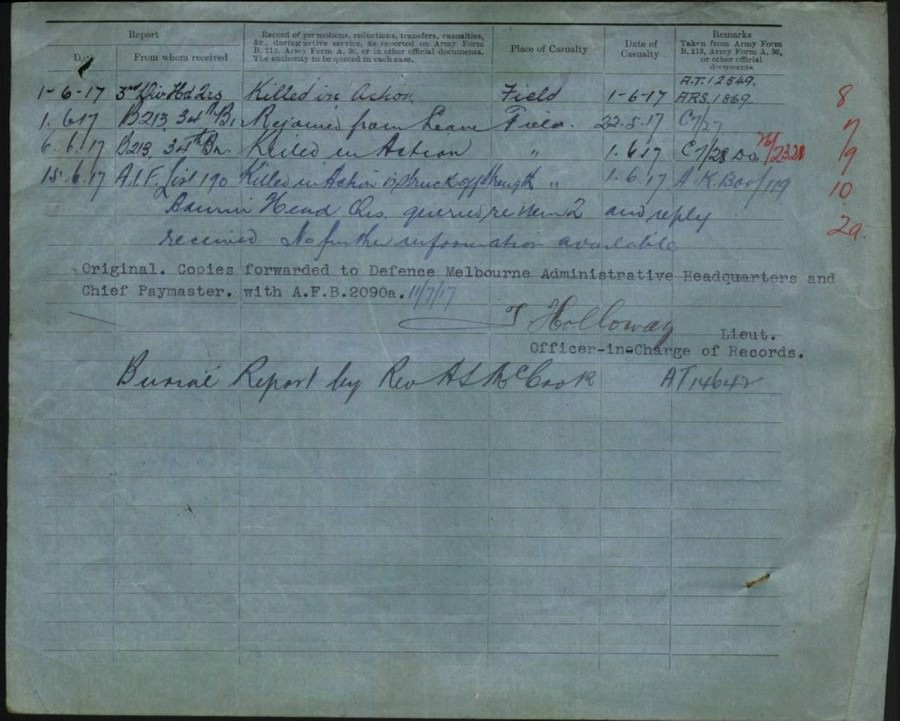 Report
Record of promotions, reductions, transfers, casualties, &c., during active service, as reported on Army Form B. 213, Army Form A. 36, or in other official documents. The authority to be quoted in each case.
Place of Casualty
Date of Casualty
Remarks
Taken from Army Form B. 213, Army Form A. 36, or other official documents
Date
From whom received
A.T. 12549.
1-6-17 3rd Div Hd Qrs Killed in Action Field 1-6-17 ARS. 1869. 8
1.6.17 B213 34th Bn. Rejoined from Leave Field. 22.5.17 C7/27 7
6.6.17 B213 34th Bn. Killed in Action " 1.6.17 C7/28 /2328 9
15.6.17 A.I.F. List 190 Killed in Action & struck off strength " 1.6.17 A.K. /119 10
Head Qrs. queried re Item 2 and reply 2a.
received No further information available
Original. Copies forwarded to Defence Melbourne Administrative Headquarters and
Chief Paymaster. with A.F.B.2090a. 11/7/17
T Holloway
Lieut.
Officer-in-Charge of Records.
Burial Report by Rev A S McCook AT 14642